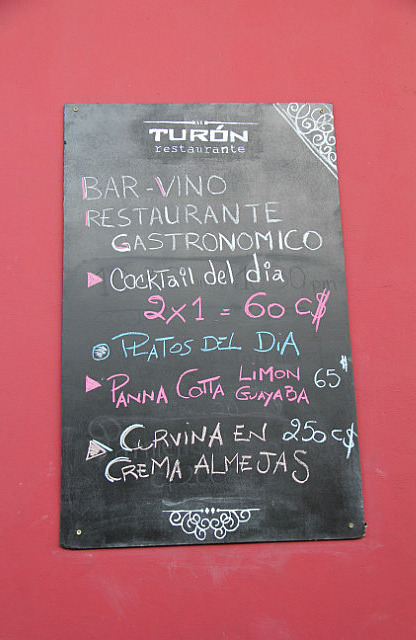 TURÓN
restaurante
BAR - VINO
RESTAURANTE
GASTRONOMICO
COCKTail del dia
2x1 = 60 C$
PLATOS DEL DiA
PANNA COTTA LIMON GUAYABA 65
CURVINA EN 250 C$
CREMA ALMEJAS